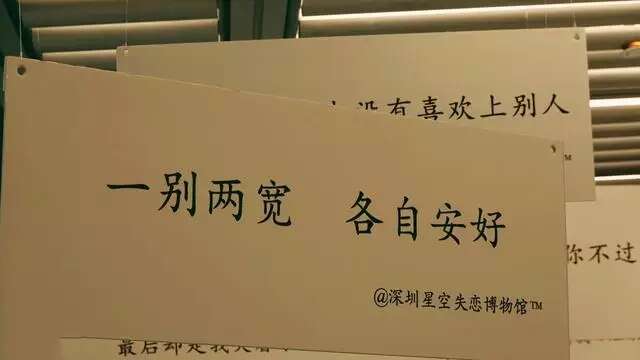 没有喜欢上别人
一别两宽 各自安好
你不过
@深圳星空失恋博物馆™
最后却是我